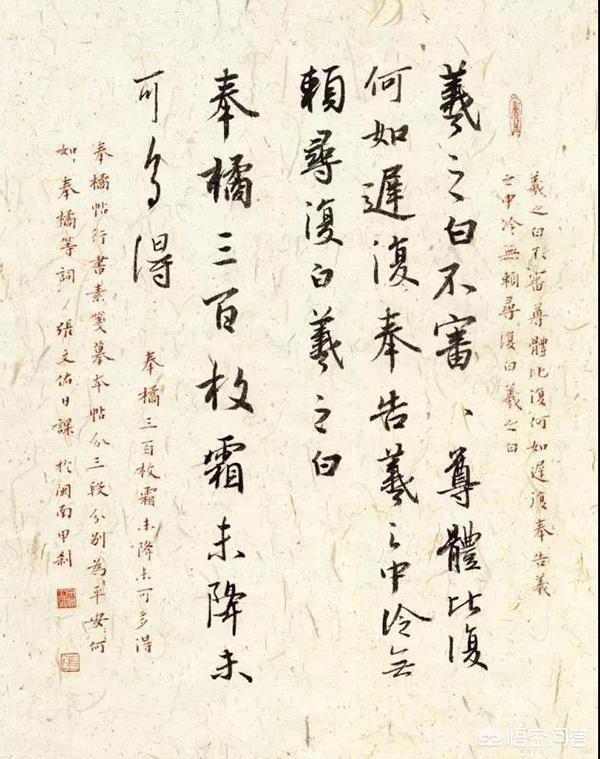 羲之白不審尊體比復何如遲復奉告羲
之中冷無賴尋復白羲之白
羲之白不審、尊體比復
何如遲復奉告羲之中冷无
賴尋復白羲之白
奉橘三百枚霜未降未
可多得
奉橘三百枚霜未降未可多得
奉橘帖行書素箋摹本帖分三段分別為平安何
如、奉橘等詞 張文佑日課 於閩南甲刹
悟空问答